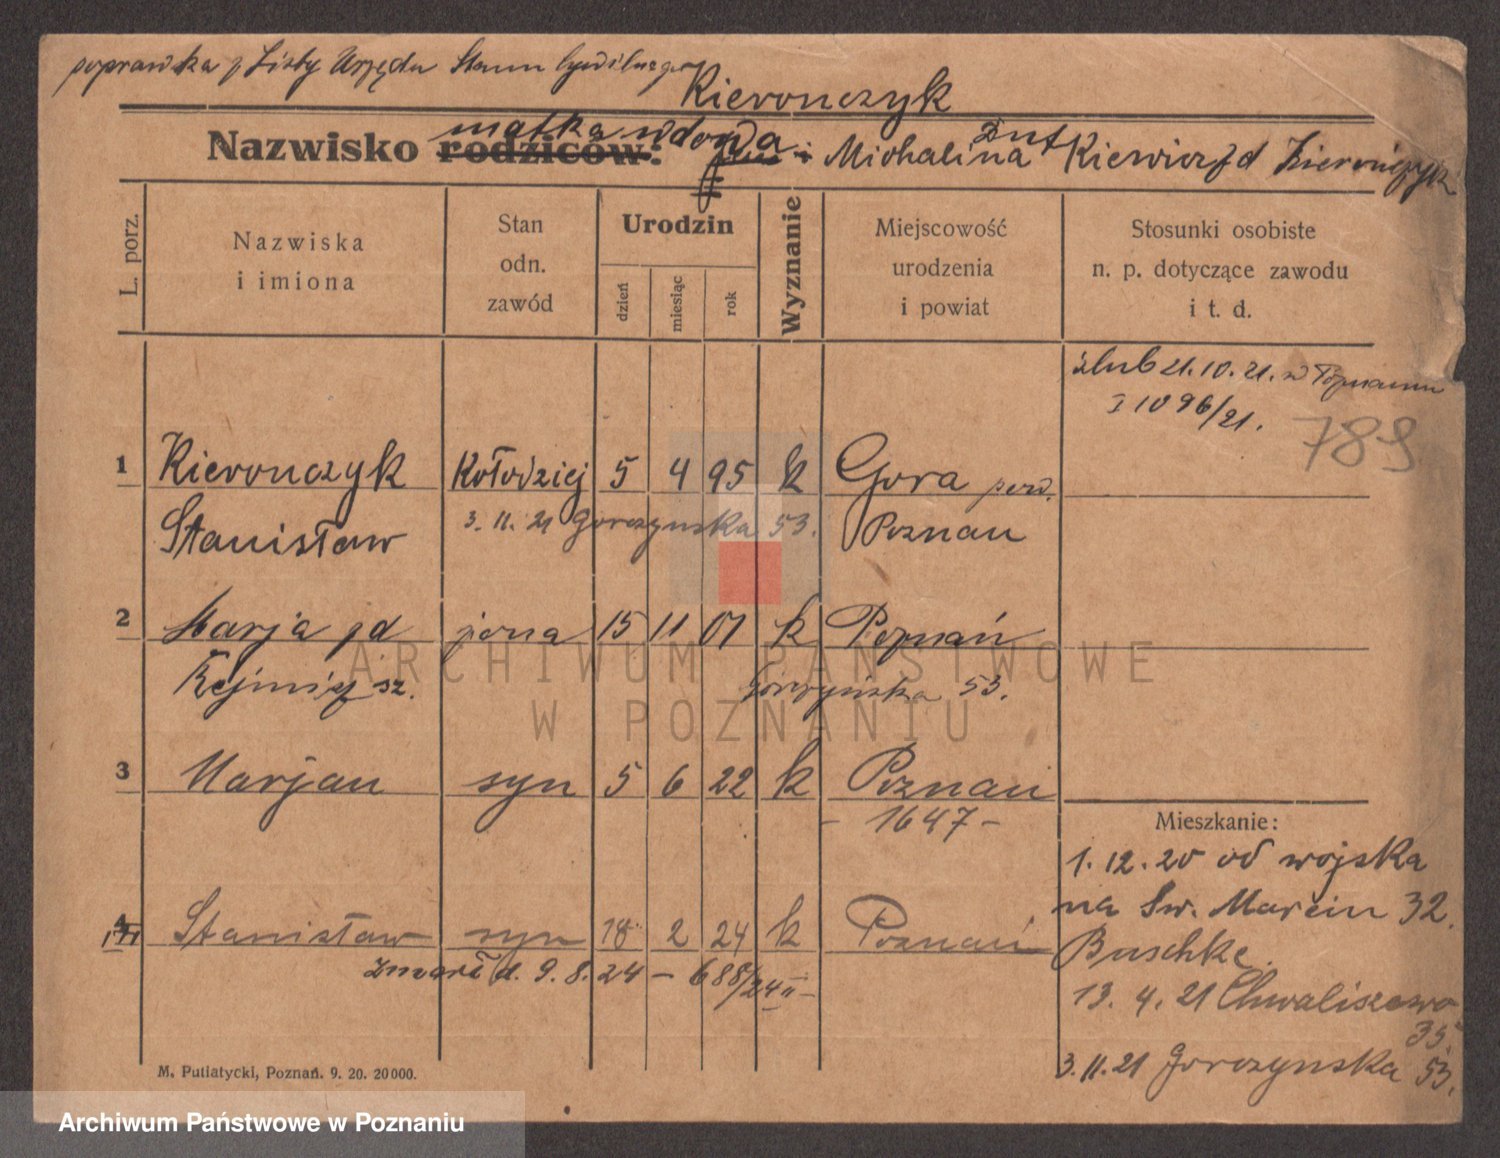 poprawka z Listy Urzędu Stanu Cywilnego
Kieronczyk
matka wdowa
Nazwisko rodziców: Michalina Kieronczyk
L. porz.
Nazwiska
i imiona
Stan
odn.
zawód
Urodzin
dzień
miesiąc
rok
Wyznanie
Miejscowość
urodzenia
i powiat
Stosunki osobiste
n. p. dotyczące zawodu
i t. d.
ślub 21.10.21. w Poznaniu
I 1096/21.
789
1 Kieronczyk Kołodziej 5 4 95 k Gora pow.
Stanisław 3. 11. 21 Gorczynska 53. Poznan
2 Marja żona 15 11 01 k Poznań
Gorczyńska 53.
3 Marjan syn 5 6 22 k Poznań
- 1647 -
Mieszkanie:
1. 12. 20 od wojska
na Św. Marcin 32.
Buschke.
4 Stanisław syn 18 2 24 k Poznań
Zmarł d. 9. 8. 24 - 688/24 II -
13. 4. 21 Chwaliszewo
35.
3. 11. 21 Gorczynska 53.
M. Putiatycki, Poznań. 9. 20. 20000.
ARCHIWUM PAŃSTWOWE
W POZNANIU
Archiwum Państwowe w Poznaniu